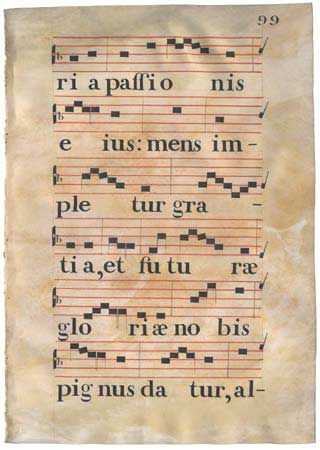 99
ri a paſſio nis
e ius: mens im-
ple tur gra -
tia, et fu tu ræ
glo riæ no bis
pig nus da tur, al-